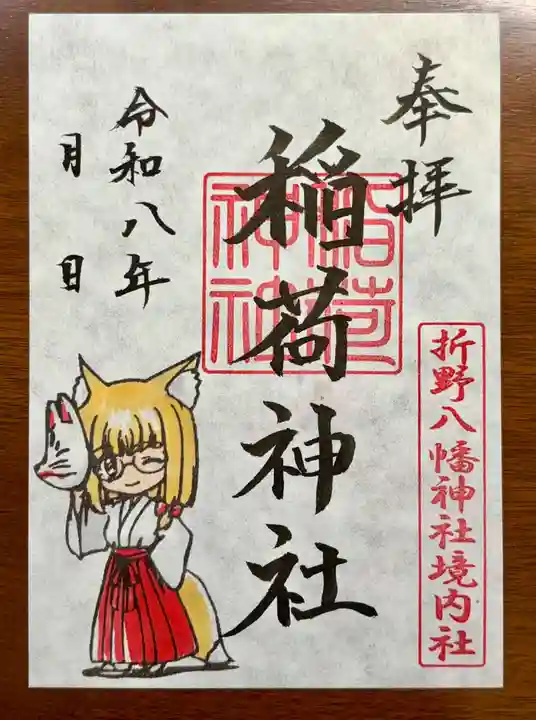 奉拝
折野八幡神社境内社
稲荷神社
稲荷神社
令和八年
月 日